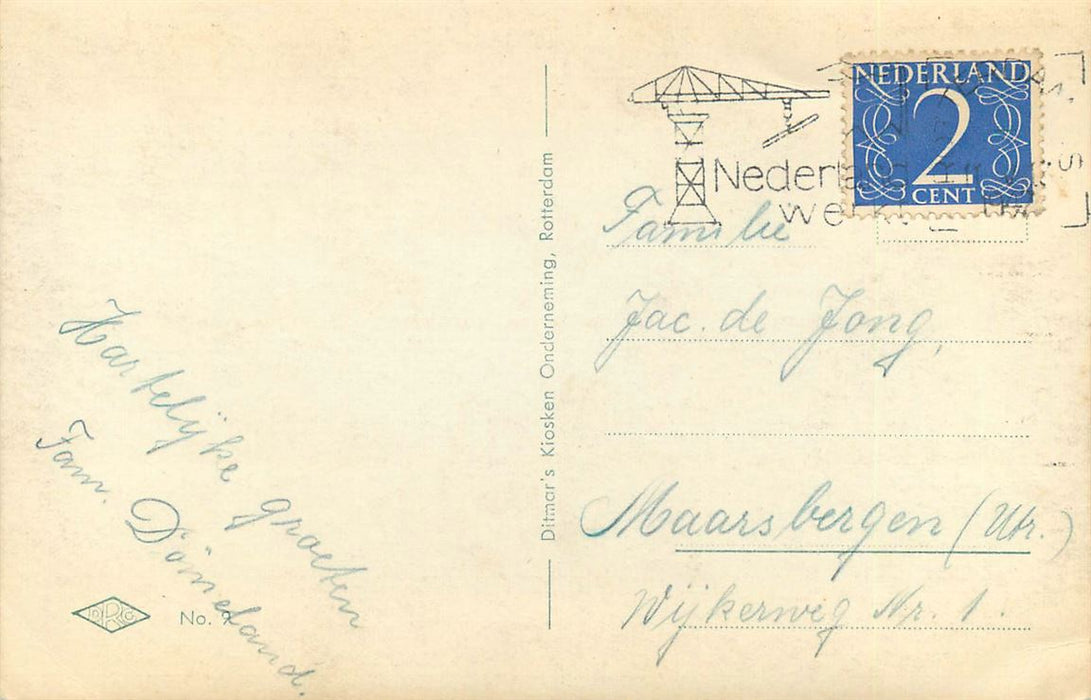 Hartelijke groeten
Fam. Döneland.
DRKO
No. 9
Ditmar's Kiosken Onderneming, Rotterdam
Nederland
werkt
NEDERLAND
2
CENT
Familie
Jac. de Jong,
Maarsbergen (Utr.)
Wijkerweg Nr. 1.